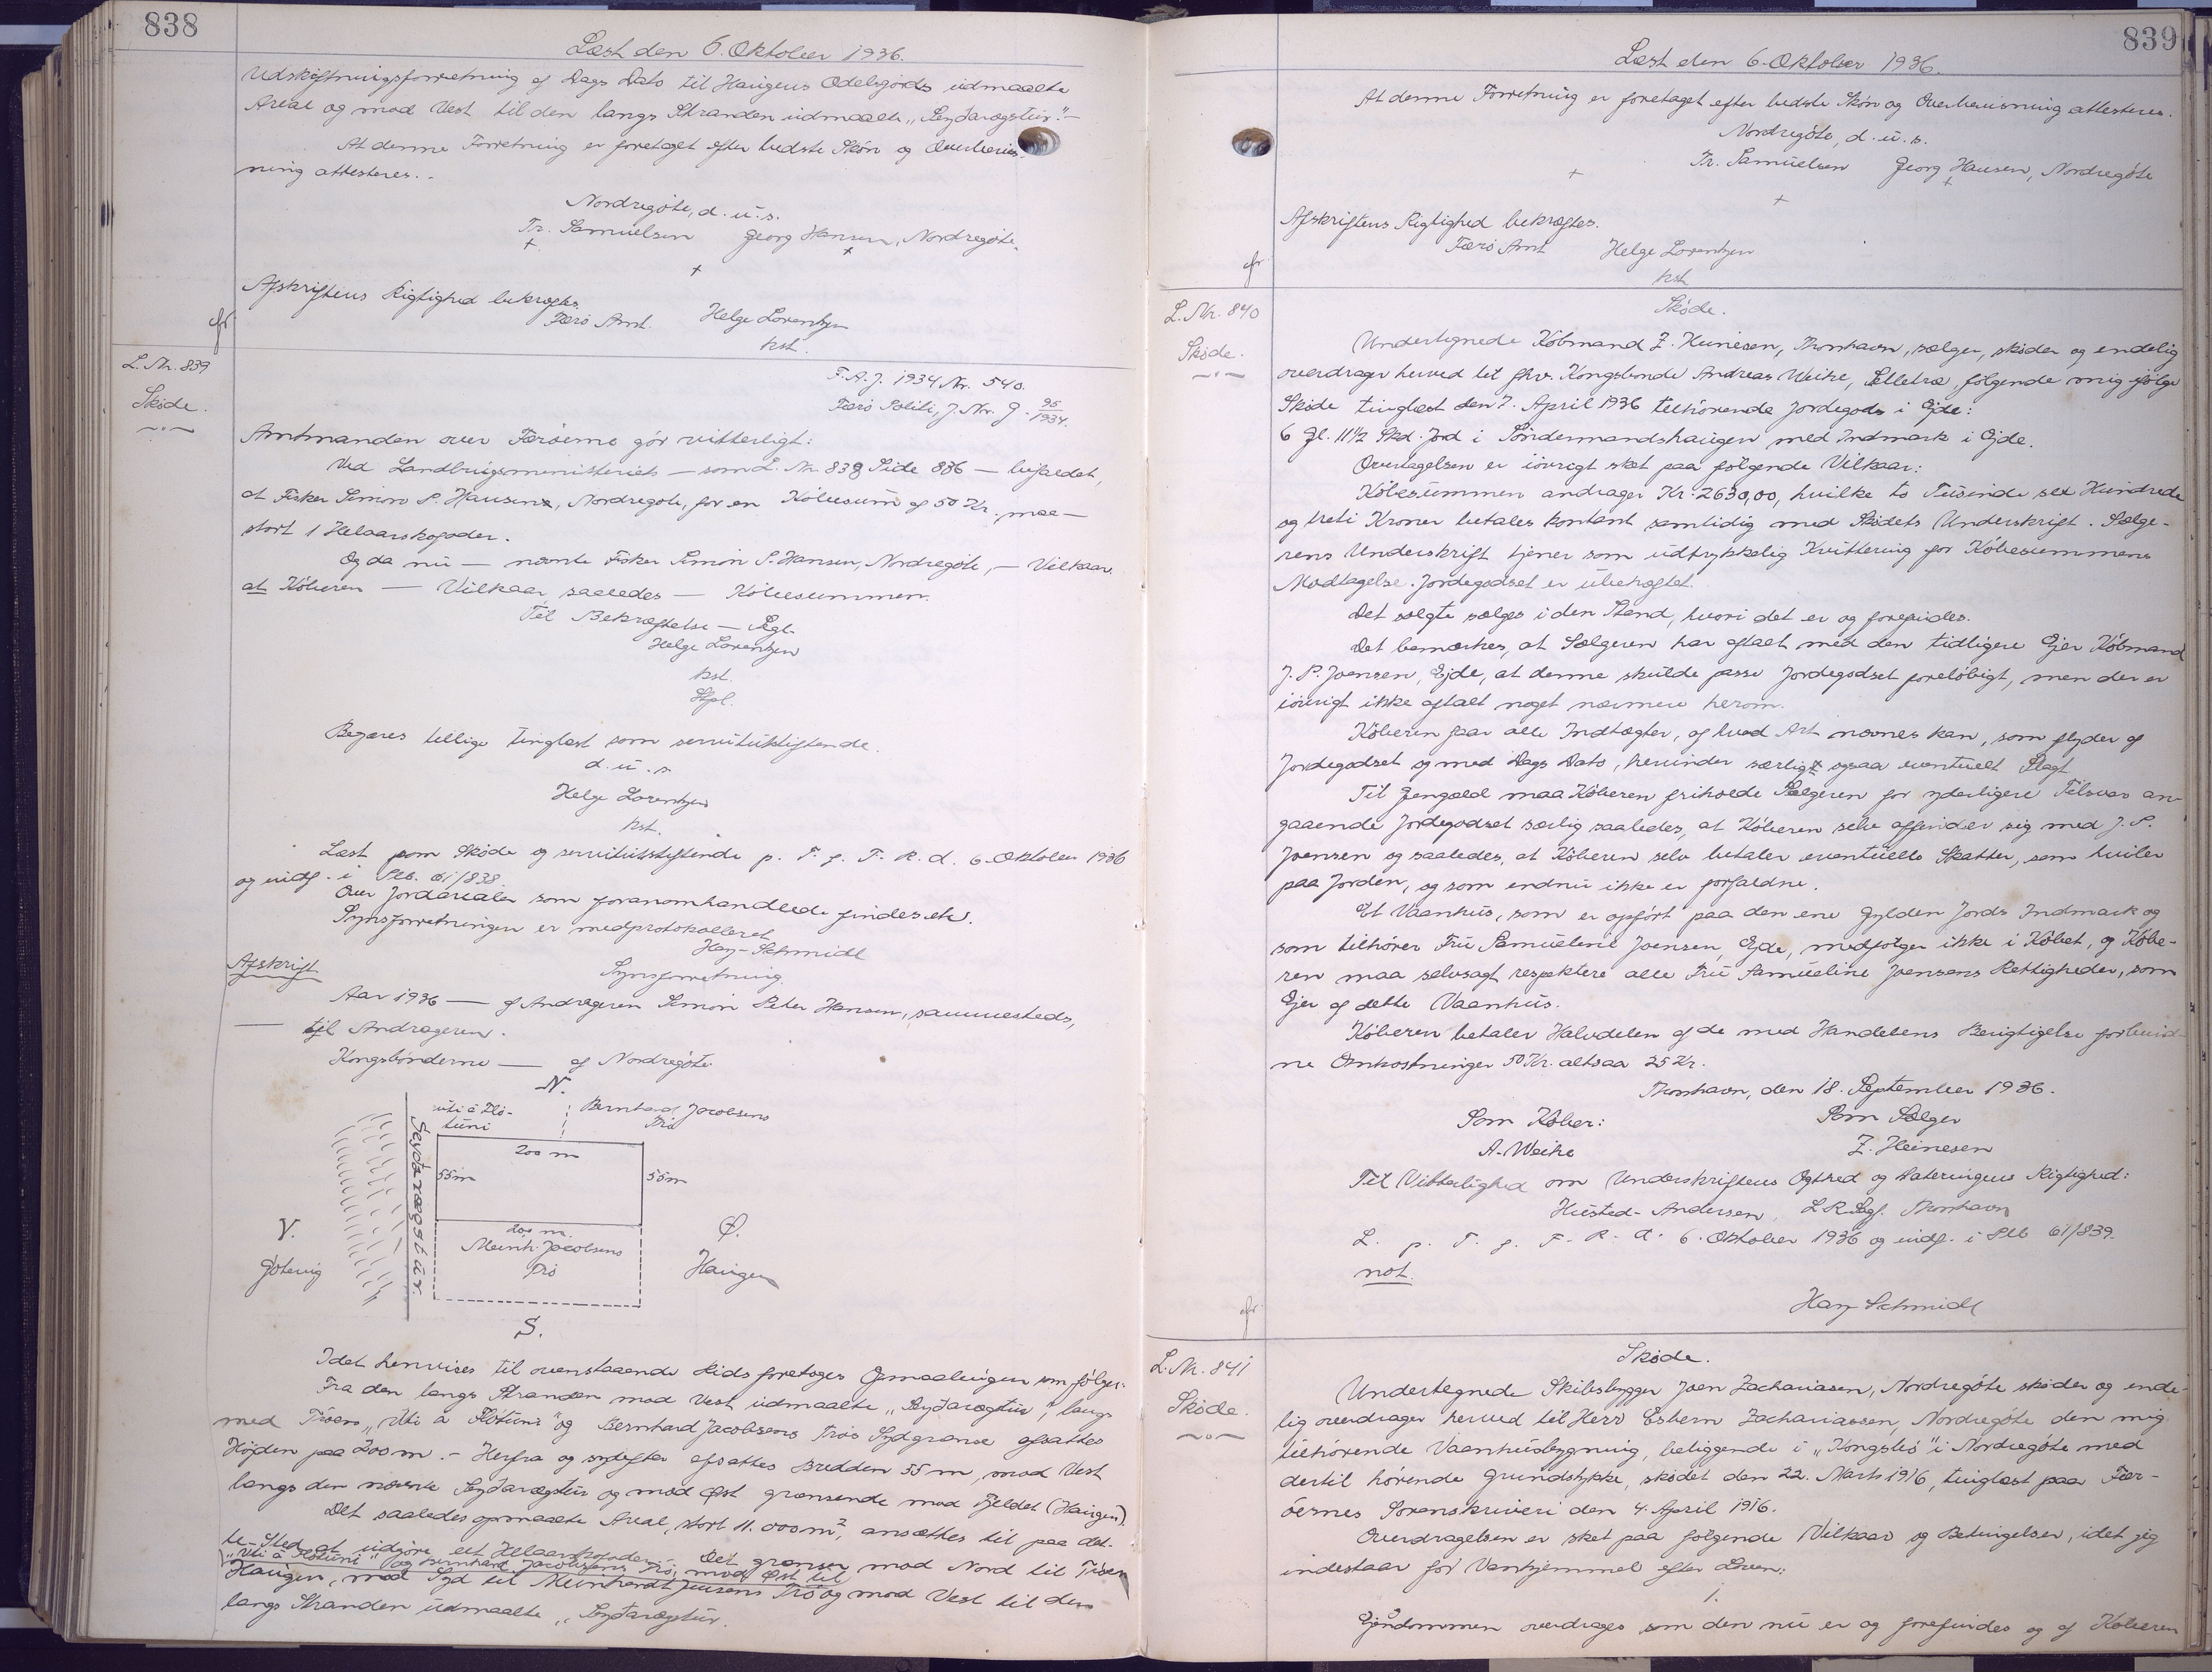 838
Læst den 6. Oktober 1936.
Udskiftningsforretning af Dags Dato til Haugens Odelsgods udmaalte
Areal og mod Vest til den langs Stranden udmaalte "Seyðarægstur".-
At denne Forretning er foretaget efter bedste Skøn og Overbevis-
ning attesteres..
Nordregöte, d. u. s.
Tr. Samuelsen Georg Hansen, Nordregöte.
+ +
+
Afskriftens Rigtighed bekræftes.
Færö Amt. Helge Lorentzen
kst.
L. Nr. 839
Skøde.
F. A. J. 1934 Nr. 540.
Færö Politi, J. Nr. G. 95/1934.
Amtmanden over Færöerne gör vitterligt:
Ved Landbrugsministeriets — som L. Nr. 838 Side 836 — befaldet,
at Fisker Simon P. Hansen, Nordregöte, for en Köbesum af 50 Kr. maa —
stort 1 Helaarskofoder.
Og da nu — nævnte Fisker Simon P. Hansen, Nordregöte, — Vilkaar.
at Köberen — Vilkaar, saaledes — Köbesummen.
Til Bekræftelse — Segl.
Helge Lorentzen
kst.
Stpl.
Begæres tillige tinglæst som servitutstiftende.
d. u. s.
Helge Lorentzen
kst.
Læst som Skøde og servitutstiftende p. T. f. F. R. d. 6. Oktober 1936
og indf. i Plb. 61/838.
Over Jordarealer som foranomhandlede findes etc.
Synsforretningen er medprotokolleret
Hay-Schmidt
Afskrift
Synsforretning.
Aar 1936 — af Andrageren Simon Peter Hansen, sammesteds,
— til Andrageren.
Kongsbönderne — af Nordregöte
N.
uti á Flö-
tuni
Bernhard Jacobsens
Trö
200 m
55 m
55 m
Seyðarægstur.
V.
Götevig
200 m.
Meinh. Jacobsens
Trö
Ø.
Haugen
S.
Idet henvises til ovenstaaende Rids foretoges Opmaalingen som fölger:
Fra den langs Stranden mod Vest udmaalte "Seyðarægstur", langs
med Tröen "Uti á Flötuni" og Bernhard Jacobsens Trös Sydgrænse afsattes
Höjden paa 200 m. - Herfra og sydefter afsattes Bredden 55 m, mod Vest
langs den nævnte Seyðarægstur og mod Øst grænsende mod Fjeldet (Haugen).
Det saaledes opmaalte Areal, stort 11.000 m², ansættes til paa det-
te Sted at udgöre eet Helaarskofoder. Det grænser mod Nord til Tröen
"Uti á Flötuni" og Bernhard Jacobsens Trö, mod Øst til
Haugen, mod Syd til Meinhardt Jensens Trö og mod Vest til den
langs Stranden udmaalte "Seyðarægstur.
839
Læst den 6. Oktober 1936.
At denne Forretning er foretaget efter bedste Skøn og Overbevisning attesteres.
Nordregöte, d. u. s.
Tr. Samuelsen Georg Hansen, Nordregöte
+ +
+
Afskriftens Rigtighed bekræftes.
Færö Amt Helge Lorentzen
kst
L. Nr. 840
Skøde.
Skøde.
Undertegnede Köbmand Z. Heinesen, Thorshavn, sælger, sköder og endelig
overdrager herved til fhv. Kongsbonde Andreas Weihe, Selletræ, fölgende mig ifölge
Sköde tinglæst den 7. April 1936 tilhörende Jordegods i Ejde:
6 Gl. 11½ Skd. Jord i Söndermandshaugen med Indmark i Ejde.
Overtagelsen er iövrigt sket paa fölgende Vilkaar:
Köbesummen andrager Kr: 2630,00, hvilke to Tusinde sex Hundrede
og treti Kroner betales kontant samtidig med Skødets Underskrift. Sælge-
rens Underskrift tjener som udtrykkelig Kvittering for Köbesummens
Modtagelse. Jordegodset er ubehæftet.
Det solgte sælges i den Stand, hvori det er og forefindes.
Det bemærkes, at Sælgeren har aftalt med den tidligere Ejer Köbmand
J. P. Joensen, Ejde, at denne skulde passe Jordegodset forelöbigt, men der er
iövrigt ikke aftalt noget nærmere herom.
Köberen faar alle Indtægter, af hvad Art nævnes kan, som flyder af
Jordegodset og med Dags Dato, herunder særligt ogsaa eventuelt Slagt
Til Gengæld maa Köberen friholde Sælgeren for yderligere Tilsvar an-
gaaende Jordegodset særlig saaledes, at Köberen selv affinder sig med J. P.
Joensen og saaledes, at Köberen selv betaler eventuelle Skatter, som hviler
paa Jorden, og som endnu ikke er forfaldne.
Et Vaanhus, som er opfört paa den ene Gylden Jords Indmark og
som tilhörer Fru Samueline Joensen, Ejde, medfölger ikke i Köbet, og Köbe-
ren maa selvsagt respektere alle Fru Samueline Joensens Rettigheder, som
Ejer af dette Vaanhus.
Köberen betaler Halvdelen af de med Handelens Berigtigelse forbund-
ne Omkostninger 50 Kr. altsaa 25 Kr.
Thorshavn, den 18. September 1936.
Som Köber: Som Sælger
A. Weihe Z. Heinesen
Til Vitterlighed om Underskriftens Ægthed og Dateringens Rigtighed:
Husted-Andersen, L.R.Sagf. Thorshavn
L. p. T. f. F. R. d. 6. Oktober 1936 og indf. i Plb 61/839.
not.
Hay-Schmidt
L. Nr. 841
Skøde.
Skøde.
Undertegnede Skibsbygger Joen Zachariasen, Nordregöte sköder og ende-
lig overdrager herved til Herr Esbern Zachariassen, Nordregöte den mig
tilhörende Vaanhusbygning, beliggende i "Kongsbö" i Nordregöte med
dertil hörende Grundstykke, skødet den 22. Marts 1916, tinglæst paa Fær-
öernes Sorenskriveri den 4. April 1916.
Overdragelsen er sket paa fölgende Vilkaar og Betingelser, idet jeg
indestaar for Vanhjemmel efter Loven:
1.
Ejendommen overdrages som den nu er og forefindes og af Köberen